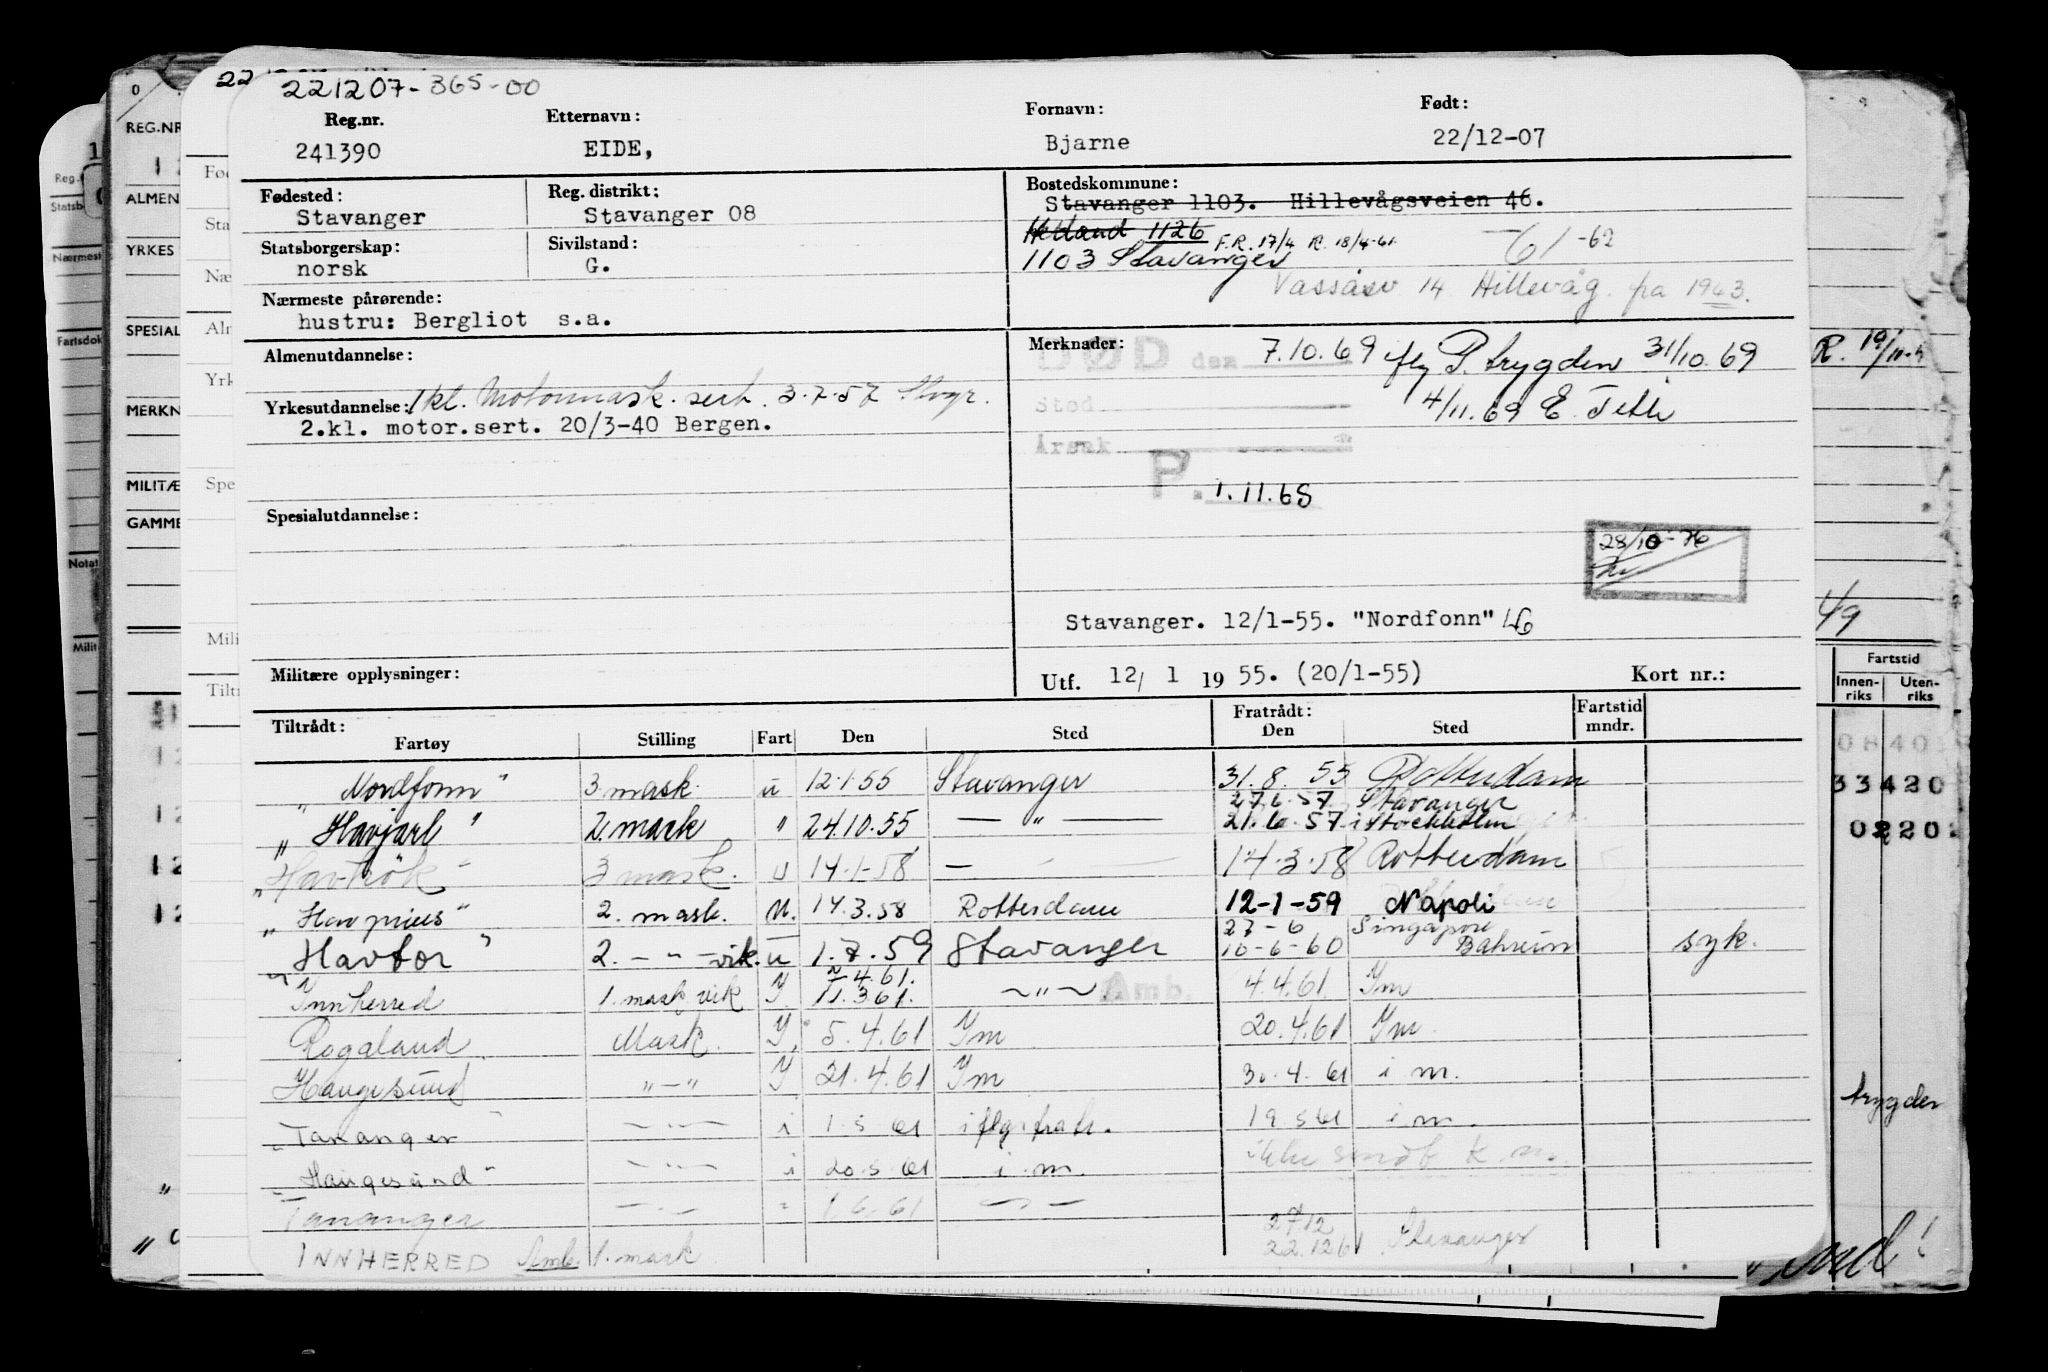 221207-365-00
Reg.nr. Etternavn: Fornavn: Født:
241390 EIDE, Bjarne 22/12-07
Fødested: Reg. distrikt: Bostedskommune:
Stavanger Stavanger 08 Stavanger 1103. Hillevågsveien 46.
Hetland 1126 F.R. 17/4 R. 18/4-61. -61-62
Statsborgerskap: Sivilstand:
norsk G. 1103 Stavanger
14 Hillevåg. fra 1963.
Nærmeste pårørende:
hustru: Bergliot s.a.
Almenutdannelse: Merknader:
DØD den 7.10.69 flg P. trygden 31/10.69
Sted 4/11.69 E.
1 kl. Motormask. sert. 3.7.57 Stvgr.
Yrkesutdannelse:
2.kl. motor.sert. 20/3-40 Bergen.
Årsak
P. 1.11.68
Spesialutdannelse:
28/10-76
Stavanger. 12/1-55. "Nordfonn"
Militære opplysninger:
Utf. 12/ 1 19 55. (20/1-55) Kort nr.:
Tiltrådt: Fratrådt: Fartstid
Fartøy Stilling Fart Den Sted Den Sted mndr.
"Nordfonn" 3 mask. u 12.1.55 Stavanger 31.8.55 Rotterdam
27.6.57 Stavanger
"Havjarl" 2. mask " 24.10.55 — " — 21.6.57 i Stockholm
"Havhök" 3 mask. u 14.1-58 — 14.3.58 Rotterdam
"Havprins" 2. mask. u. 14.3.58 Rotterdam 12-1-59 Napoli
27-6 Singapore
"Havtor" 2. — " — vik. u 1.7.59 Stavanger 10-6-60 Bahrein syk.
4.61.
Innherred 1. mask vik Y 11.3.61. — " — Amb. 4.4.61 Ym
Rogaland Mask. Y. 5.4.61 Ym 20.4.61 Ym.
Haugesund " — " Y 21.4.61 Ym 30.4.61 i m.
"Tananger" — " — i 1.5.61 i flg. fratr. 19.5.61 i m.
"Haugesund" — " — i 20.5.61 i. m. ikke
Tananger — " — " 1.6.61 — " —
27.12
22.12.61 Stavanger
INNHERRED Amb. 1. mask
REG.NR
ALMEN
YRKES
SPESIAL
MERKN
MILITÆ
GAMME
R. 19/11-
49
Fartstid
Innen- Uten-
riks riks
08 40
33 4 20
trygden